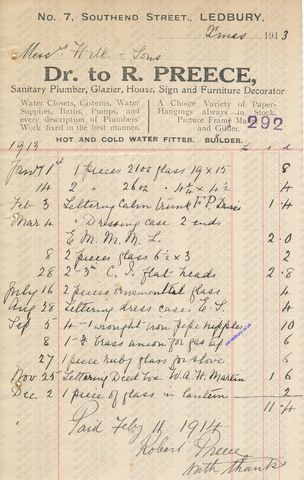 No. 7, Southend Street, LEDBURY,
Xmas 1913
Messrs Hill & Sons
Dr. to R. PREECE,
Sanitary Plumber, Glazier, House, Sign and Furniture Decorator.
Water Closets, Cisterns, Water
Supplies, Baths, Pumps, and
every description of Plumbers'
Work fixed in the best manner.
A Choice Variety of Paper-
Hangings always in Stock.
Picture Frame
and Gilder.
292
HOT AND COLD WATER FITTER. BUILDER.
1913 £ s d
Jany 1st 1 pieces 21 oz glass 19 x 15 8
14 2 " 26 oz " 4½ x 4½ 4
Feb 3 Lettering Cabin trunk F P Davis 1 4
Mar 4 " Dressing case 2 ends
E M. M. M. L. 2 0
8 2 pieces glass 6½ x 3 2
28 2 - 3" C. I. flat heads 2.8
July 16 2 pieces ornamental glass 4
Aug 28 Lettering dress case E. S. 4
Sep 5 4 - 1 wrought iron pipe nipples 10
8 1 brass union for gas 6
27 1 piece ruby glass for stove 6
Nov 25 Lettering Deed box W. A. H. Martin 1 6
Dec 2 1 piece of glass in lantern 2
11.4
Paid Feby 11 1914
Robert Preece
with thanks
old-ledbury.co.uk